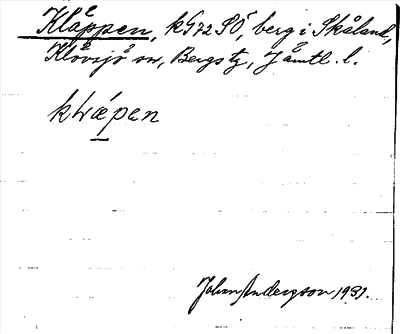 Kläppen, k972SÖ, berg i Skåland,
Klövsjö sn, Bergs tg, Jämtl. l.
klæ´pen
Johan Anderzson 1931.